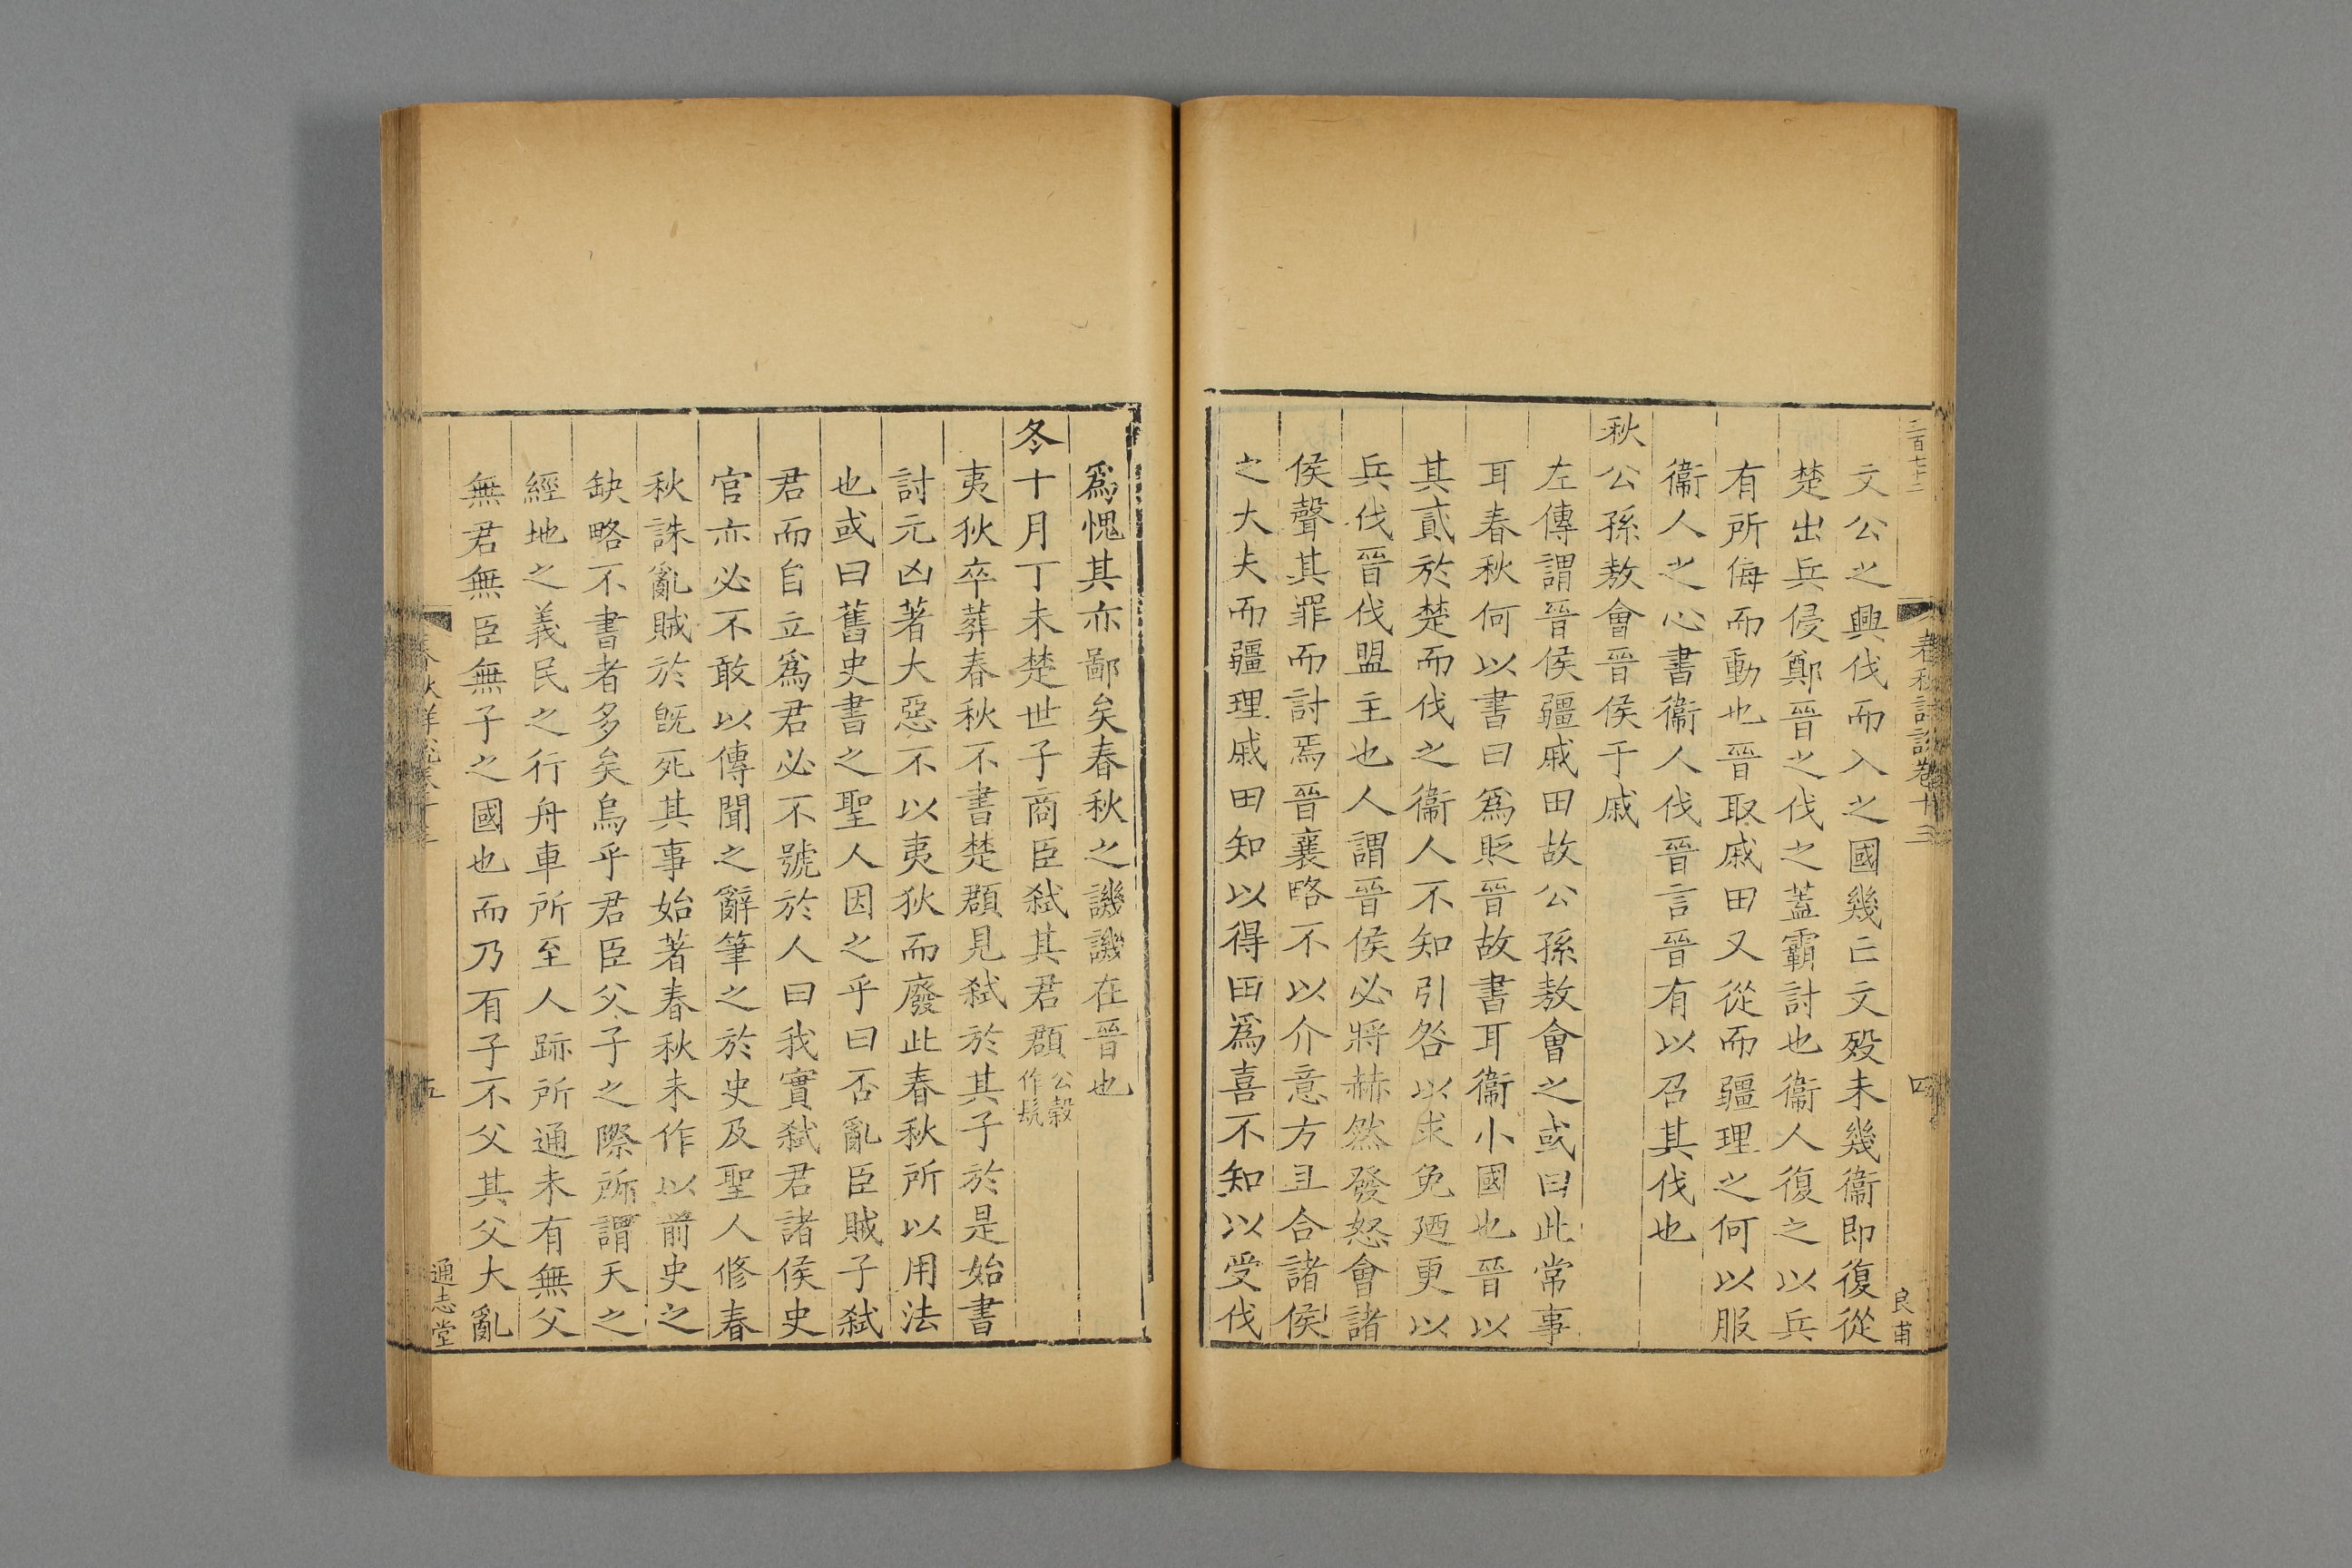 二百七十二
春秋詳說卷十三
四
良甫
文公之興伐而入之國幾亡文歿未幾衞即復從
楚出兵侵鄭晉之伐之蓋霸討也衞人復之以兵
有所侮而動也晉取戚田又從而疆理之何以服
衞人之心書衞人伐晉言晉有以召其伐也
秋公孫敖會晉侯于戚
左傳謂晉侯疆戚田故公孫敖會之或曰此常事
耳春秋何以書曰爲貶晉故書耳衞小國也晉以
其貳於楚而伐之衞人不知引咎以求免廼更以
兵伐晉伐盟主也人謂晉侯必將赫然發怒會諸
侯聲其罪而討焉晉襄略不以介意方且合諸侯
之大夫而疆理戚田知以得田爲喜不知以受伐
爲愧其亦鄙矣春秋之譏譏在晉也
冬十月丁未楚世子商臣弑其君頵公穀作髡
夷狄卒葬春秋不書楚頵見弑於其子於是始書
討元凶著大惡不以夷狄而廢此春秋所以用法
也或曰舊史書之聖人因之乎曰否亂臣賊子弑
君而自立爲君必不號於人曰我實弑君諸侯史
官亦必不敢以傳聞之辭筆之於史及聖人修春
秋誅亂賊於旣死其事始著春秋未作以前史之
缺略不書者多矣烏乎君臣父子之際所謂天之
經地之義民之行舟車所至人跡所通未有無父
無君無臣無子之國也而乃有子不父其父大亂
春秋詳說卷十三
五
通志堂